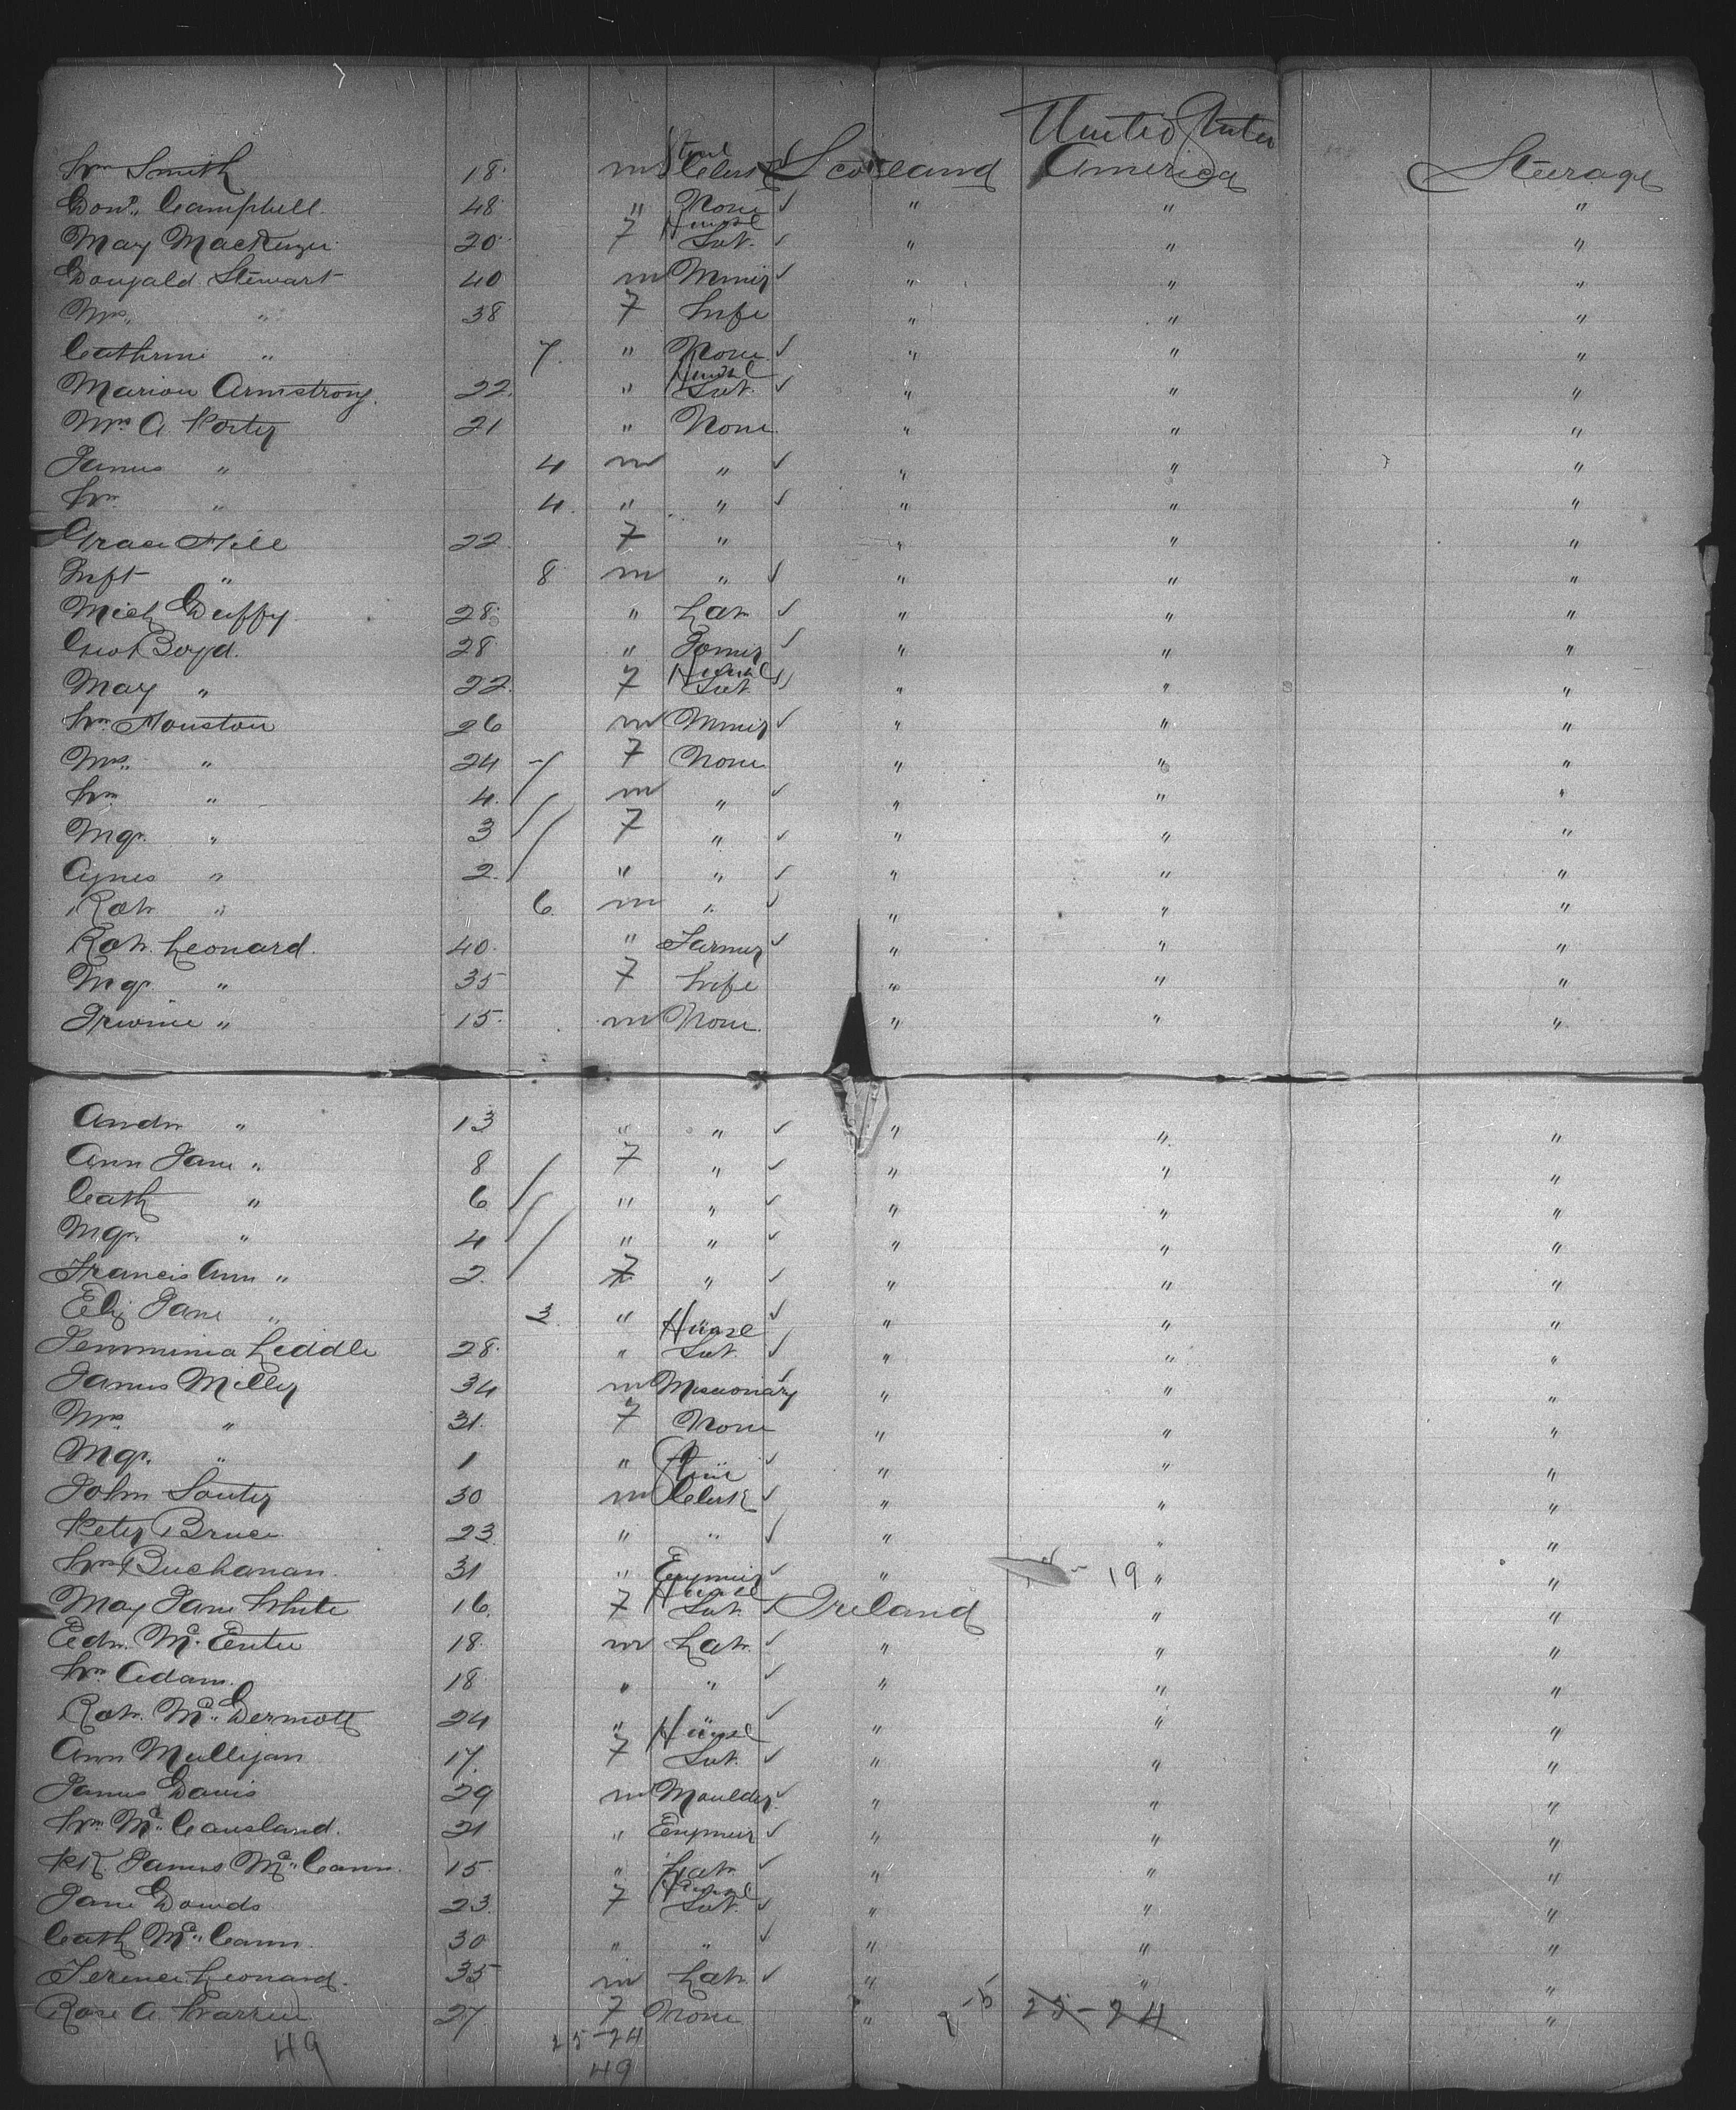 United States
Wm Smith 18 m Steel Clerk ✓ Scotland America Steerage
Don'd. Campbell. 48 " None ✓ " " "
Mary MacKenzie 20 7 House Svt. ✓ " " "
Dougald Stewart 40 m Miner ✓ " " "
Mrs. " 38 7 Wife " " "
Cathrine " 7. " None ✓ " " "
Marion Armstrong. 22. " House Svt. ✓ " " "
Mrs. A. Porter 21 " None. " " "
James " 4 m " ✓ " " "
Wm " 4. " " ✓ " " "
Grace Hill 22. 7 " " " "
Inft " 8 m " ✓ " " "
Mich Duffy. 28. " Labr ✓ " " "
Boyd. 28. " Joiner ✓ " " "
Mary " 22. 7 House Svt " " "
Wm. Houston 26 m Miner ✓ " " "
Mrs. " 24 7 None " " "
Wm " 4. m " ✓ " " "
Mgt. " 3 7 " ✓ " " "
Agnes " 2. " " ✓ " " "
Robt " 6. m " ✓ " " "
Robt. Leonard. 40. " Farmer ✓ " " "
Mgt " 35 7 Wife " " "
Irvine " 15. m None. " " "
Andw " 13 " " ✓ " " "
Ann Jane " 8 7 " ✓ " " "
Cath " 6 " " ✓ " " "
Mgt. " 4 " " ✓ " " "
Francis Ann " 2. 7 " ✓ " " "
Eliz Jane " 3. " ✓ " " "
Jemminia Liddle 28. " House Svt. ✓ " " "
James Miller 34 m Missionary " " "
Mrs. " 31. 7 None " " "
Mgt. " 1 " ✓ " " "
John Souter 30 m Clerk ✓ " " "
Peter Bruce 23 " " ✓ " " "
Wm Buchanan. 31 " Engineer ✓ " 19 " "
Mary Jane White 16. 7 House Svt. ✓ Ireland " "
Edw. Mc. Entee 18. m Labr. ✓ " " "
Wm. Adam. 18. " " ✓ " " "
Robt. Mc. Dermott 24 " " ✓ " " "
Ann Mulligan 17. 7 House Svt. ✓ " " "
James Davis 29 m Moulder. ✓ " " "
Wm. Mc. Causland. 21 " Engineer ✓ " " "
Pk. James Mc. Cann. 15. " Labr ✓ " " "
Jane Dowds 23. 7 House Svt. ✓ " " "
Cath Mc. Cann. 30 " " ✓ " " "
Terence Leonard. 35 m Labr. ✓ " " "
Rose A. Warren 27 7 None " 25-24 "
49 25-24
49